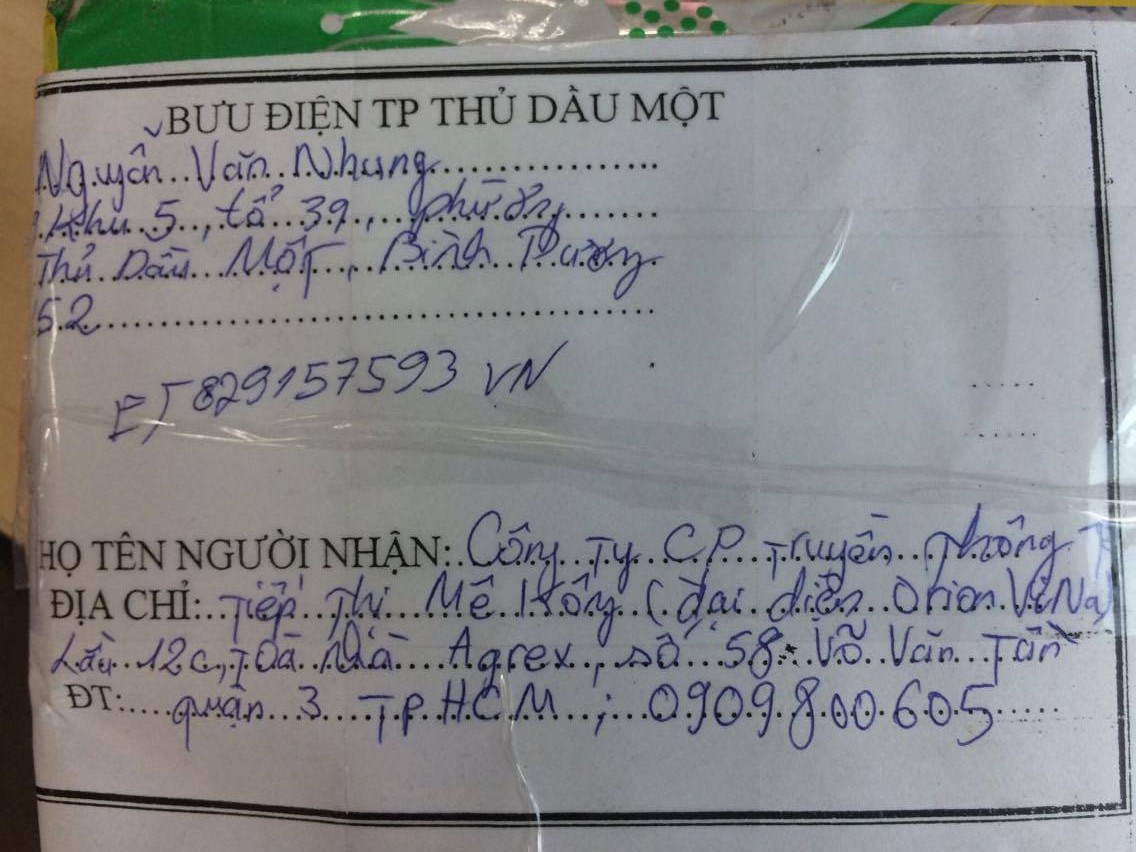 BƯU ĐIỆN TP THỦ DẦU MỘT
Nguyễn Văn Nhung
Khu 5, tổ 39, phường
Thủ Dầu Một, Bình Dương
52
ET 829157593 VN
HỌ TÊN NGƯỜI NHẬN: Công Ty CP Truyền thông
ĐỊA CHỈ: Tiếp Thị Mê Kông (đại diện Orion ViNa)
Lầu 12c, Toà nhà Agrex, số 58 Võ Văn Tần
ĐT: quận 3 TP.HCM ; 0909800605